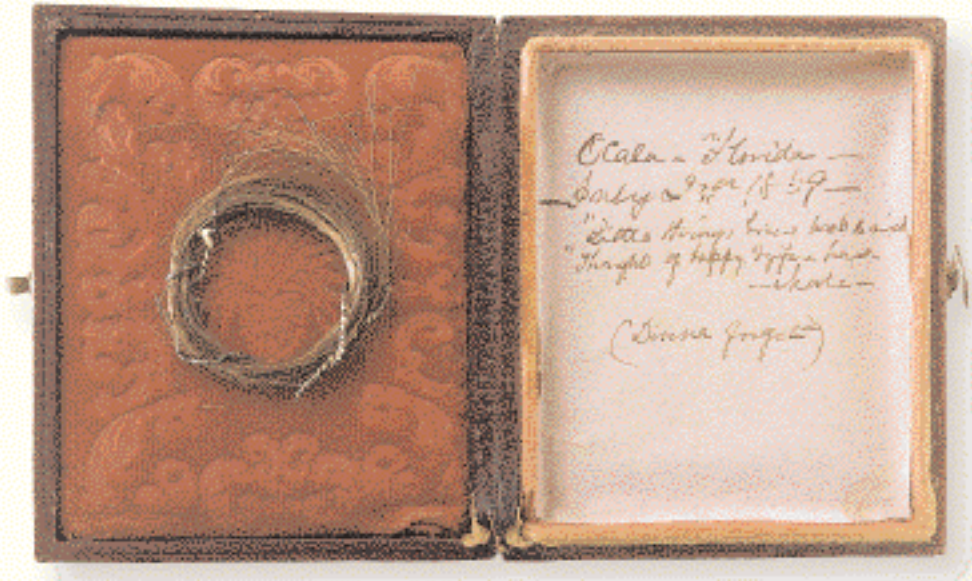 Ocala - Florida -
July 2nd 1859 -
"Little things bring back to mind
"Thoughts of happy
(Dinna forget)